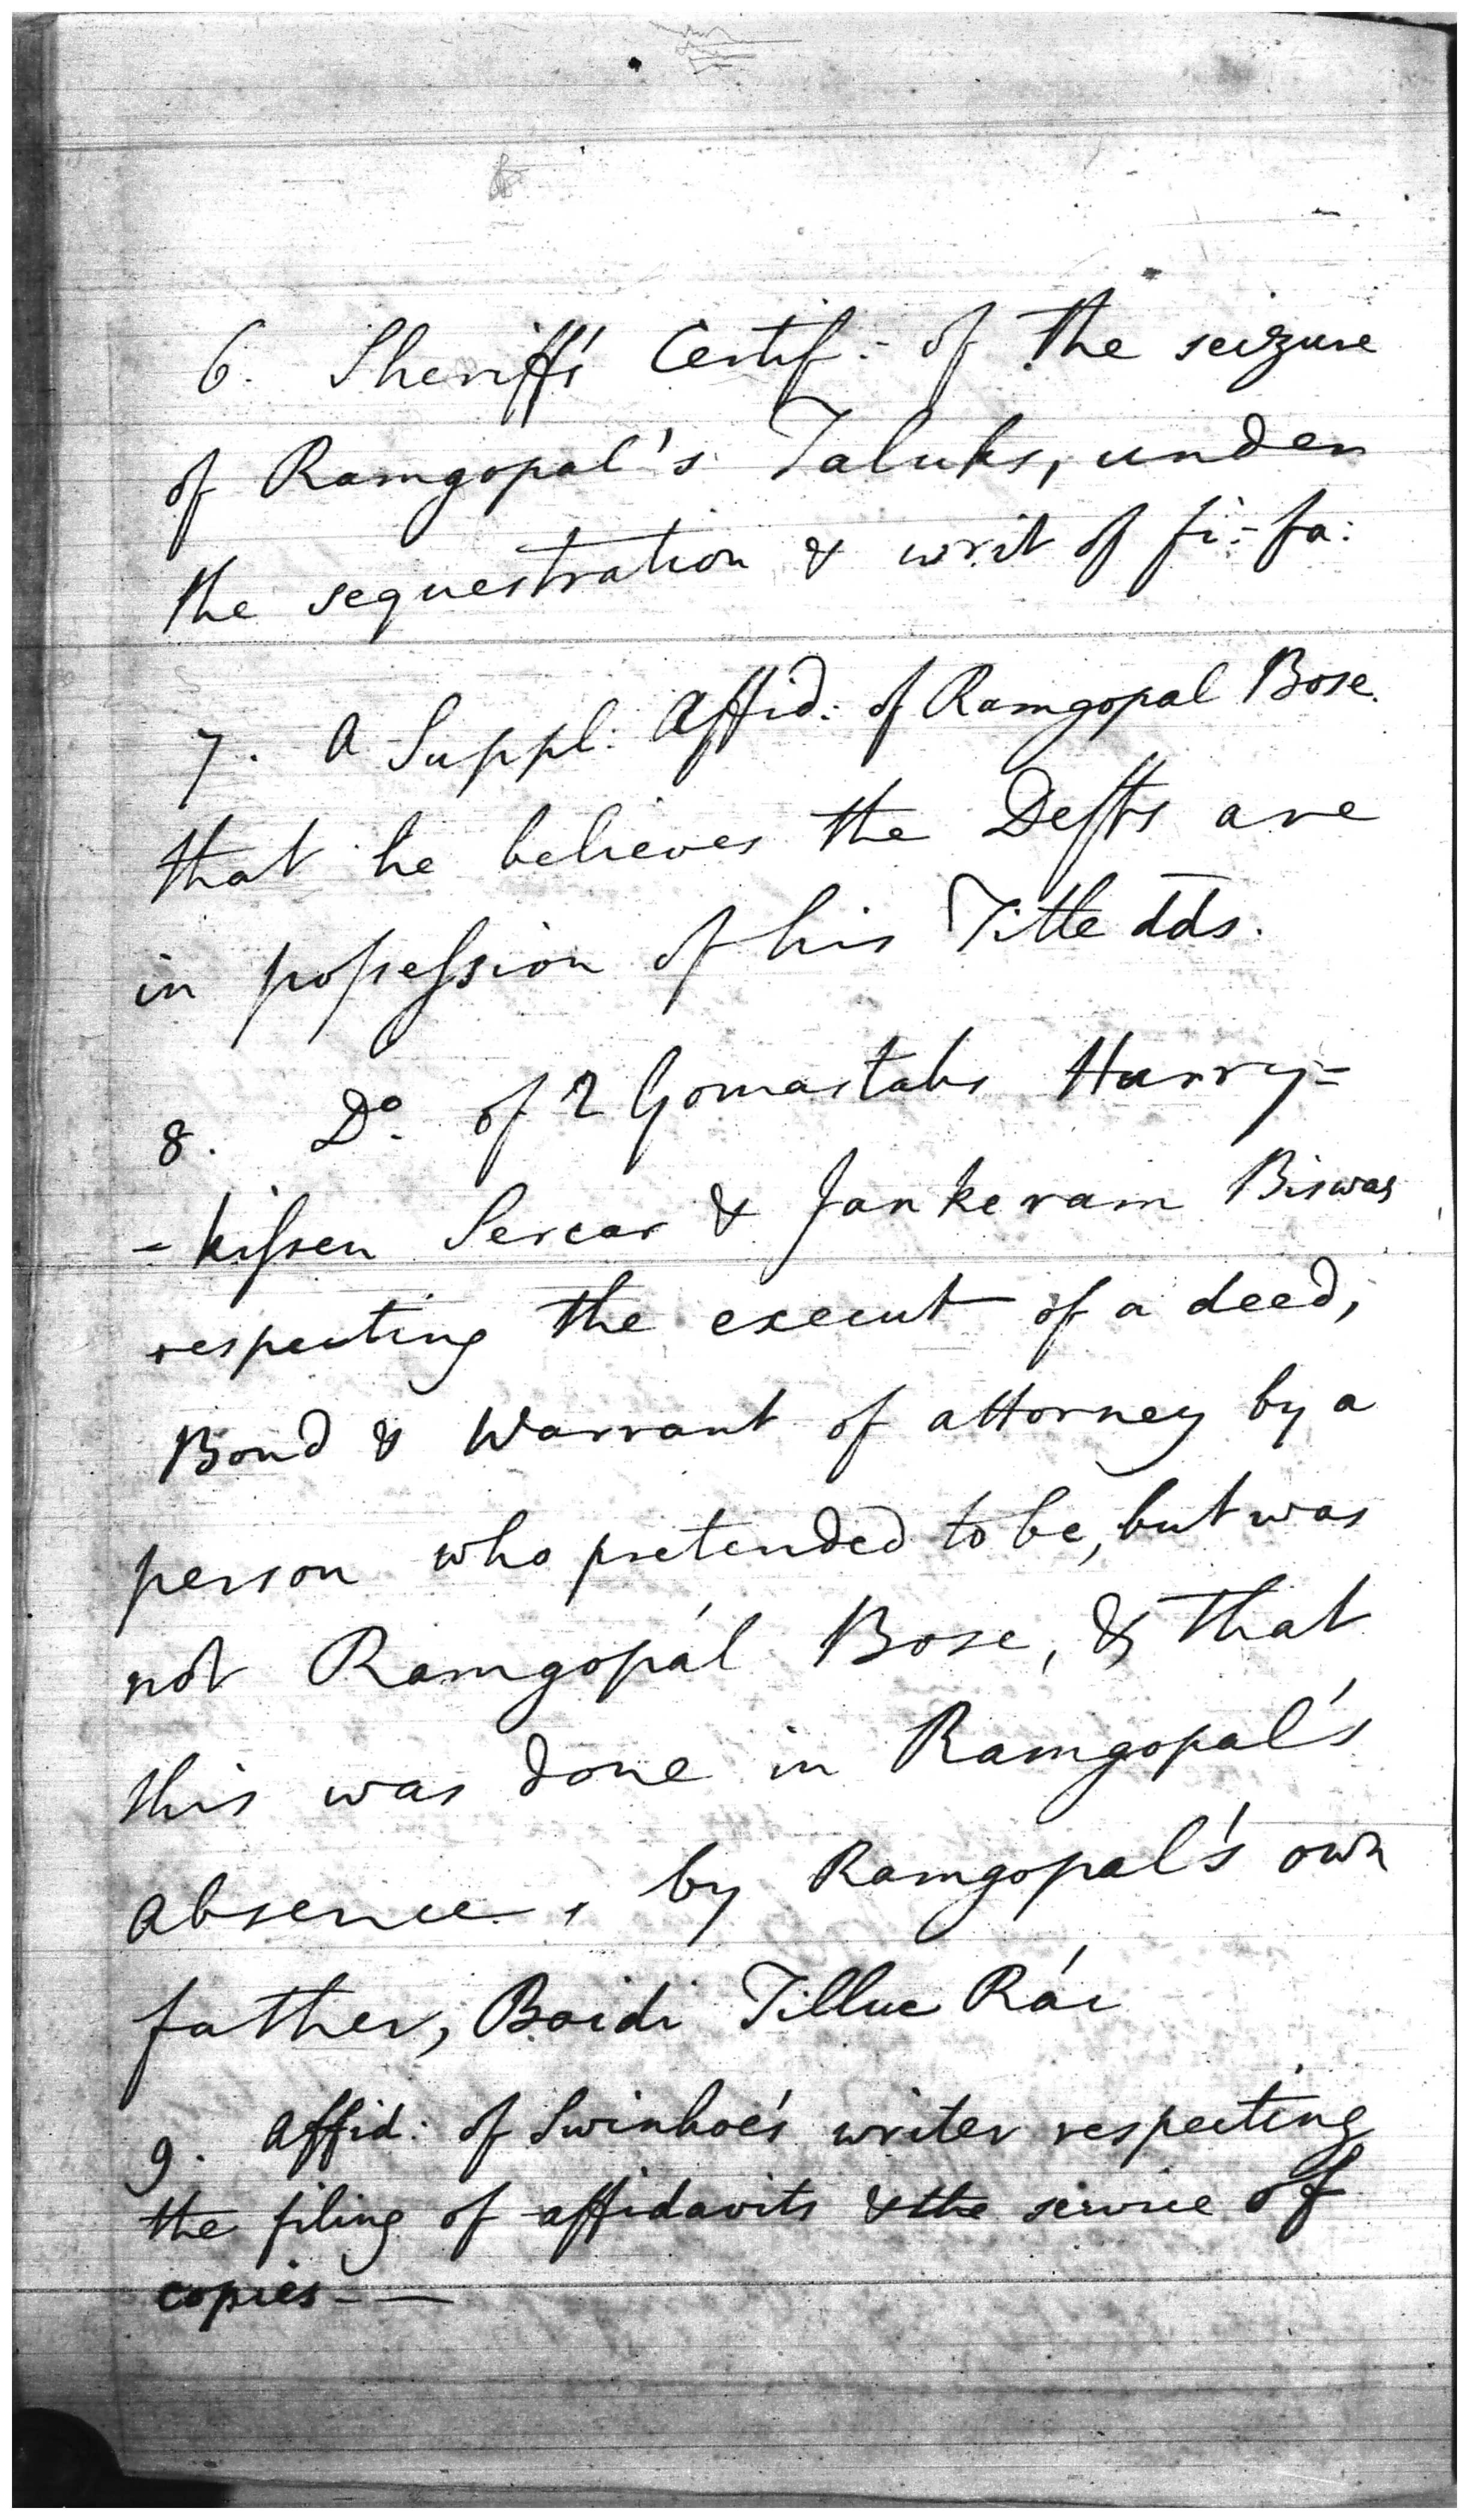 6. Sheriff's Certif: of the seizure
of Ramgopal's Taluks, under
the sequestration & writ of fi: fa:
7. A Suppl: Affid: of Ramgopal Bose.
that he believes the Defts are
in possession of his Title dds.
8. Do. of 2 Gomastahs Hurry=
-kissen Sercar & Jankeram Biswas
respecting the execut of a deed,
Bond & Warrant of attorney by a
person who pretended to be, but was
not Ramgopál Bose, & that
this was done in Ramgopal's
absence, by Ramgopal's own
father, Boidi Tilluc Rái
9. Affid: of Swinhoe's writer respecting
the filing of affidavits & the service of
copies - —